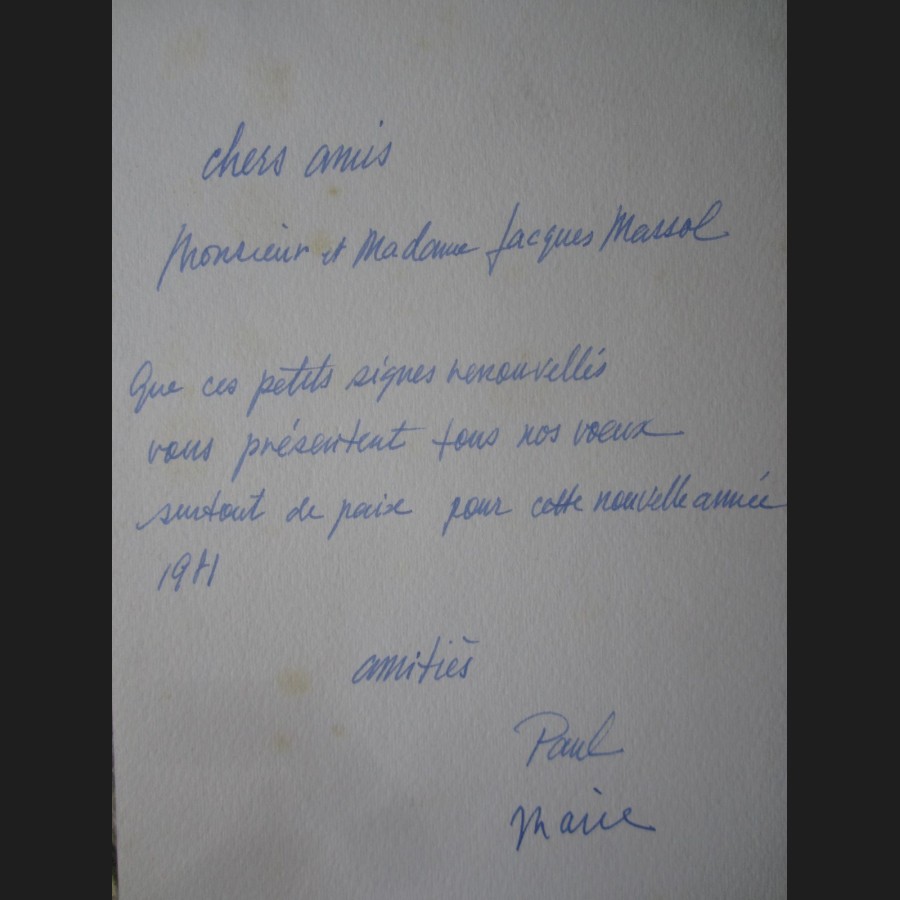 chers amis
Monsieur et Madame Jacques Massol
Que ces petits signes renouvellés
vous présentent tous nos voeux
surtout de paix pour cette nouvelle année
amitiés
Paul
Marie